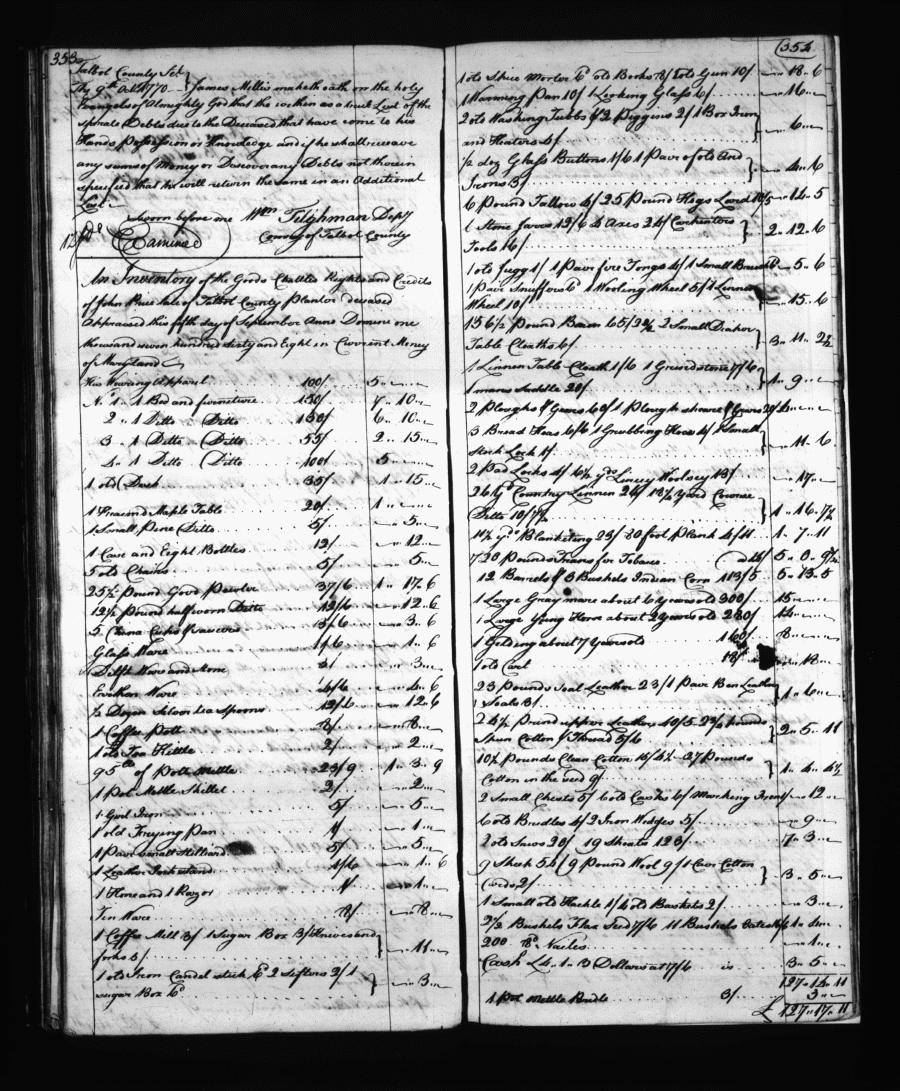 353
Talbot County Sct
The 9th Octr 1770 James Millis maketh oath on the holy
Evangels of Almighty God that the within is a true List of the
sperate Debts due to the Deceased that have come to his
Hands Possession or Knowledge and if he shall receave
any sums of Money or Discover any Debts not therein
specified that he will return the same in an Additional
List
Sworn before one Wm Tilghman Depy
Examined Comry of Talbot County
An Inventory of the Goods Chattles Rights and Credits
of John Price late of Talbot County Planter deceased
Appraised this fifth day of September Anno Domini one
thousand seven hundred sixty and Eight in Current Money
of Maryland
His Wearing Apparel 100/ 5
No 1 1 Bed and furneture 150/ 7 10
2 1 Ditto Ditto 130/ 6 10
3 1 Ditto Ditto 55/ 2 15
4 1 Ditto Ditto 100/ 5
1 old Desk 35/ 1 15
1 Maple Table 20/ 1
1 Small Pine Ditto 5/ 5
1 Case and Eight Bottles 12/ 12
5 old Chairs 5/ 5
25½ Pound Good Pewter 37/6 1 17 6
12½ Pound half worn Ditto 12/6 12 6
5 China Cups & Saucers 3/6 3 6
Glass Ware 1/6 1 6
Delft Ware and Stone 3/ 3
Earthen Ware 4/6 4 6
½ Dozen Silver tea Spoons 12/6 12 6
1 Coffee Pott 8/ 8
1 old Tea Kittle 2/ 2
95 lb of Pott Mettle 23/9 1 3 9
1 Pot Mettle Skillet 2/ 2
1 Gird Iron 5/ 5
1 old Frying Pan 1/ 1
1 Pair small Stilliard 5/ 5
1 Leather 1/6 1 6
1 Hone and 1 Razor 1/ 1
Tin Ware 8/ 8
1 Coffee Mill 3/ 1 Sugar Box 3/ Knives and
forks 5/ 11
1 old Iron Candel stick 6d 2 Sifters 2/ 1
sugar Box 6d 3
354
1 old Spice Morter 6d old Books 8/ 1 old Gun 10/ 18 6
1 Warming Pan 10/ 1 Looking Glass 6/ 16
2 old Washing Tubbs 2 Piggins 2/ 1 Box Iron
and Heaters 4/ 6
½ doz Glass Buttons 1/6 1 Pair of old And
Irons 3/ 4 6
6 Pound Tallow 4/ 25 Pound Hogs Lard 10/5 14 5
1 Stone Jarrs 12/6 4 Axes 24/ Carpenters
Tools 16/ 2 12 6
1 old Jugg 1/ 1 Pair fire Tongs 4/ 1 Small Brush 5 6
1 Pair Snuffers 6d 1 Wooling Wheel 5/ 1 Linnen
Wheel 10/ 15 6
156½ Pound Bacon 65/2½ 2 Small Diaper
Table Cloaths 6/ 3 11 2½
1 Linnen Table Cloath 1/6 1 Grindstone 7/6
1 mans Saddle 20/ 1 9
2 Ploughs & Gears 60/ 1 Plough sheare & Gears 20/ 4
3 Broad Hoes 6/6 1 Grubbing Hoe 4/ 1 Small
Stock Lock 1/ 11 6
2 Pad Locks 4/ 6½ yds Lincey Woolsey 13/ 17
26 yd Country Linnen 26/ 13½ Yard Coarse
Ditto 10/7½ 1 16 7½
11½ yds Blanketing 23/ 80 foot Plank 4/11 1 7 11
720 Pounds Transfer Tobacco 5 0 9½
12 Barrels & 3 Bushels Indian Corn 113/5 5 13 5
1 Large Gray mare about 6 years old 300/ 15
1 Large Young Horse about 2 years old 280/ 14
1 Gelding about 7 years old 160/ 8
1 old Cart 18/ 18
23 Pounds Soal Leather 23/ 1 Pair Leather
Soals 3/ 1 6
24½ Pound upper Leather 40/5 2¾ pounds
Spun Cotton & Thread 5/6 2 5 11
10½ Pounds Clean Cotton 15/4½ 27 Pounds
Cotton in the seed 9/ 1 4 4½
2 Small Chests 5/ 6 old Casks 6/ Marking Iron 1/ 12
6 old Bridles 4/ 2 Iron Wedges 5/ 9
2 old Sows 20/ 19 Shoats 123/ 7 3
9 Sheep 54/ 9 Pound Wool 9/ 1 Pair Cotton
Cards 2/ 3 5
1 Small old Heckle 1/ 4 old Baskets 2/ 3
2½ Bushels Flax Seed 7/6 11 Bushels Oats 16/6 1 4
200 8d Nailes 1
Cash £4 1 3 Dollars at 7/6 is 3 5
127 14 11
1 Pot Mettle Kittle 3/ 3
£ 127 17 11